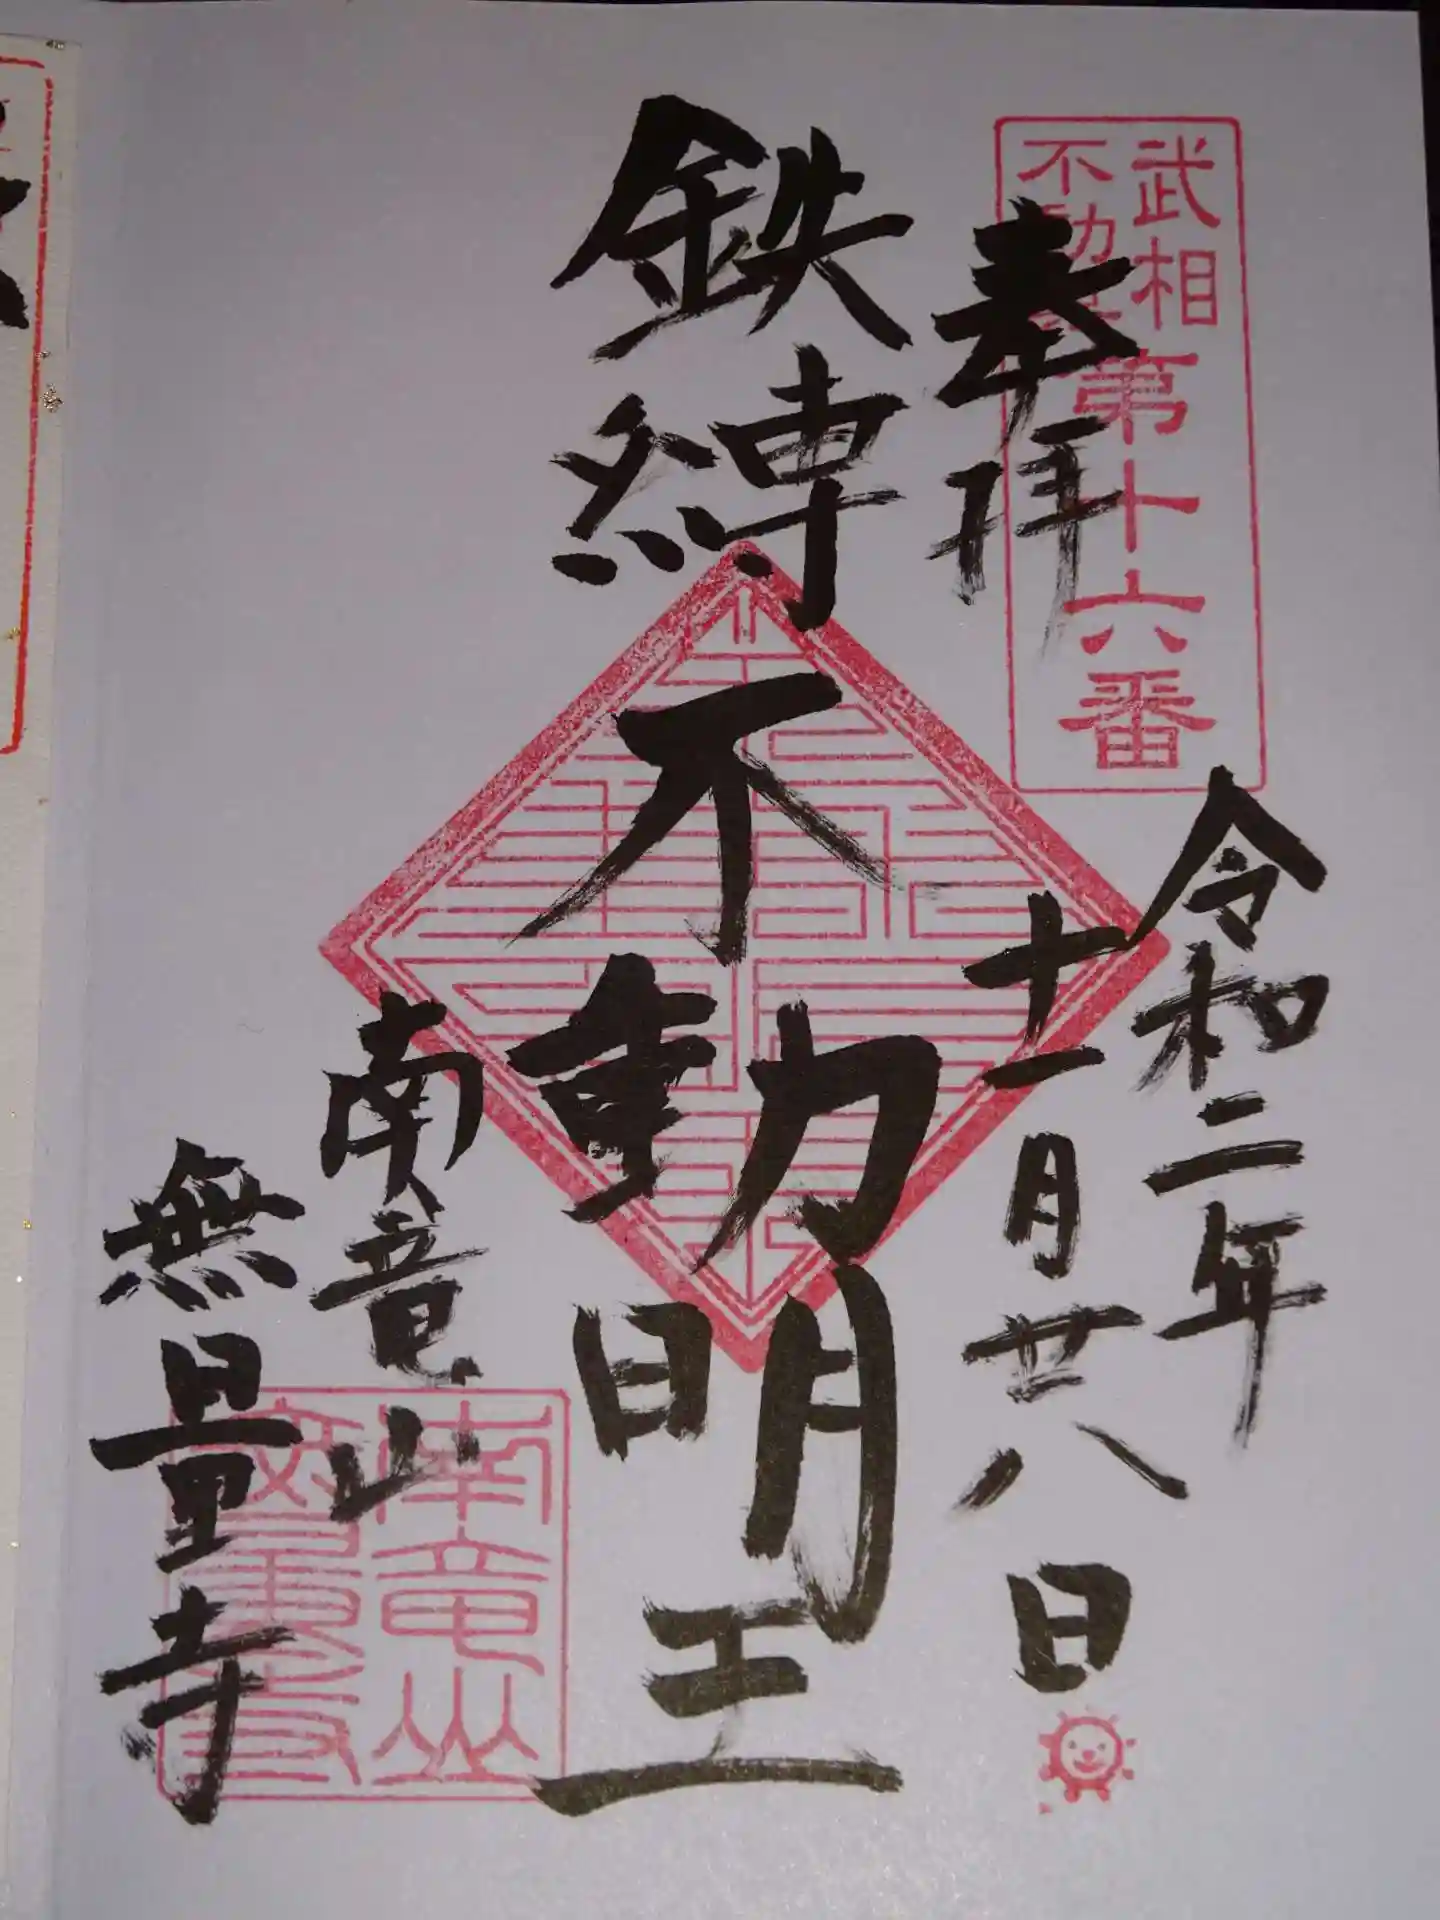 武相
不動尊
第十六番
奉拝
令和二年
十一月廿八日
鉄縛不動明王
南竜山
無量寺
南竜山